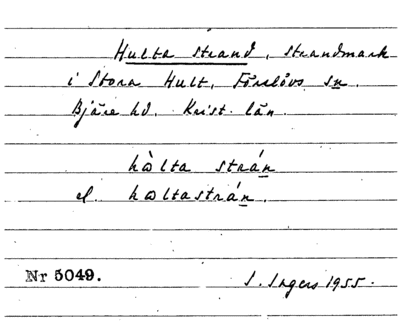 Hulta strand, strandmark
i Stora Hult, Förslövs sn.
Bjäre hd. Krist. län.
hòlta strán
el. hωltastrán.
Nr 5049.
I. Ingers 1955.